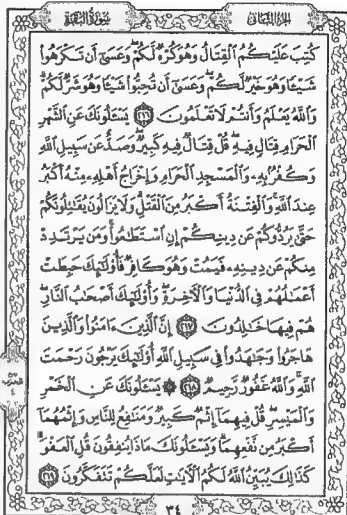 سُورَةُ البَقَرَةِ الجُزْءُ الثَّانِي
كُتِبَ عَلَيْكُمُ ٱلْقِتَالُ وَهُوَ كُرْهٌ لَّكُمْ ۖ وَعَسَىٰٓ أَن تَكْرَهُوا۟
شَيْـًٔا وَهُوَ خَيْرٌ لَّكُمْ ۖ وَعَسَىٰٓ أَن تُحِبُّوا۟ شَيْـًٔا وَهُوَ شَرٌّ لَّكُمْ ۗ
وَٱللَّهُ يَعْلَمُ وَأَنتُمْ لَا تَعْلَمُونَ ٢١٦ يَسْـَٔلُونَكَ عَنِ ٱلشَّهْرِ
ٱلْحَرَامِ قِتَالٍ فِيهِ ۖ قُلْ قِتَالٌ فِيهِ كَبِيرٌ ۖ وَصَدٌّ عَن سَبِيلِ ٱللَّهِ
وَكُفْرٌۢ بِهِۦ وَٱلْمَسْجِدِ ٱلْحَرَامِ وَإِخْرَاجُ أَهْلِهِۦ مِنْهُ أَكْبَرُ
عِندَ ٱللَّهِ ۚ وَٱلْفِتْنَةُ أَكْبَرُ مِنَ ٱلْقَتْلِ ۗ وَلَا يَزَالُونَ يُقَـٰتِلُونَكُمْ
حَتَّىٰ يَرُدُّوكُمْ عَن دِينِكُمْ إِنِ ٱسْتَطَـٰعُوا۟ ۚ وَمَن يَرْتَدِدْ
مِنكُمْ عَن دِينِهِۦ فَيَمُتْ وَهُوَ كَافِرٌ فَأُو۟لَـٰٓئِكَ حَبِطَتْ
أَعْمَـٰلُهُمْ فِى ٱلدُّنْيَا وَٱلْـَٔاخِرَةِ ۖ وَأُو۟لَـٰٓئِكَ أَصْحَـٰبُ ٱلنَّارِ ۖ
هُمْ فِيهَا خَـٰلِدُونَ ٢١٧ إِنَّ ٱلَّذِينَ ءَامَنُوا۟ وَٱلَّذِينَ
هَاجَرُوا۟ وَجَـٰهَدُوا۟ فِى سَبِيلِ ٱللَّهِ أُو۟لَـٰٓئِكَ يَرْجُونَ رَحْمَتَ
ٱللَّهِ ۚ وَٱللَّهُ غَفُورٌ رَّحِيمٌ ٢١٨ ۞ يَسْـَٔلُونَكَ عَنِ ٱلْخَمْرِ
وَٱلْمَيْسِرِ ۖ قُلْ فِيهِمَآ إِثْمٌ كَبِيرٌ وَمَنَـٰفِعُ لِلنَّاسِ وَإِثْمُهُمَآ
أَكْبَرُ مِن نَّفْعِهِمَا ۗ وَيَسْـَٔلُونَكَ مَاذَا يُنفِقُونَ قُلِ ٱلْعَفْوَ ۗ
كَذَٰلِكَ يُبَيِّنُ ٱللَّهُ لَكُمُ ٱلْـَٔايَـٰتِ لَعَلَّكُمْ تَتَفَكَّرُونَ ٢١٩
٣٤